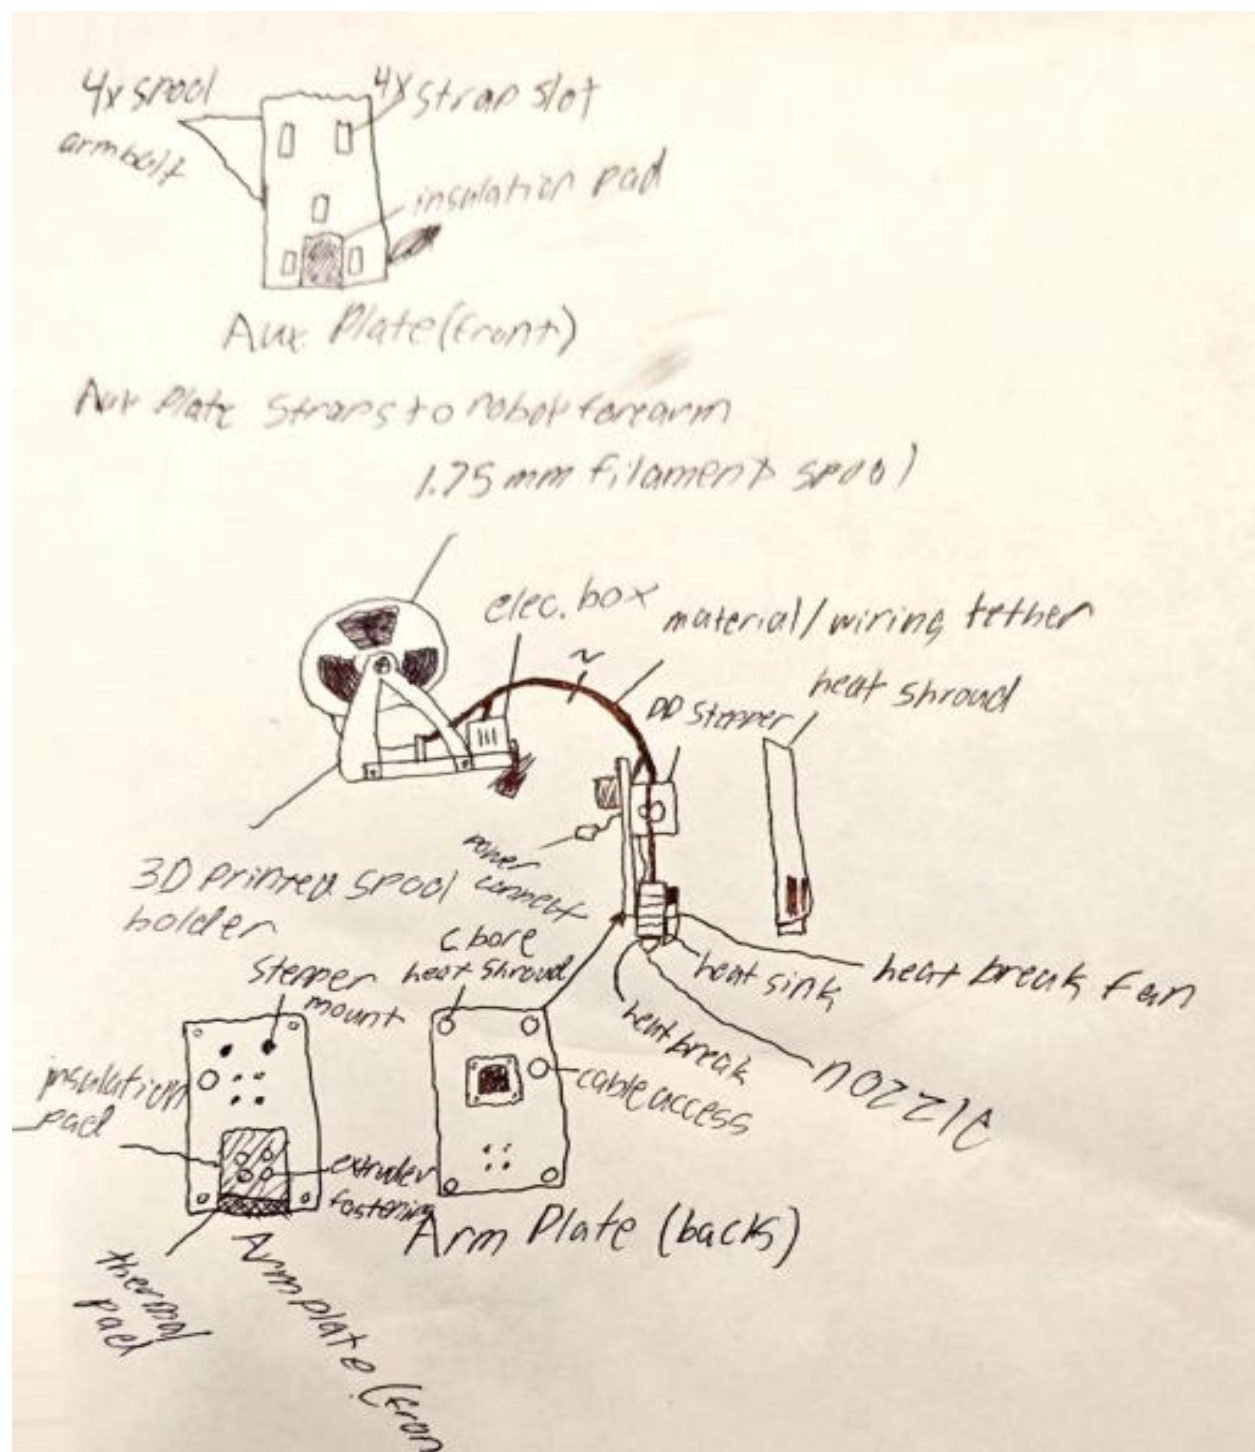 4x spool
arm bolt
4x strap slot
insulation pad
Aux Plate (front)
Aux Plate straps to robot forearm
1.75 mm filament spool
elec. box
material/wiring tether
~
DD stepper
heat shroud
power
connect
3D printed spool
holder
c bore
heat shroud
stepper
mount
heat sink
heat break fan
heat break
nozzle
insulation
pad
cable access
extruder
fastening
Arm Plate (back)
thermal
pad
Arm plate (fron